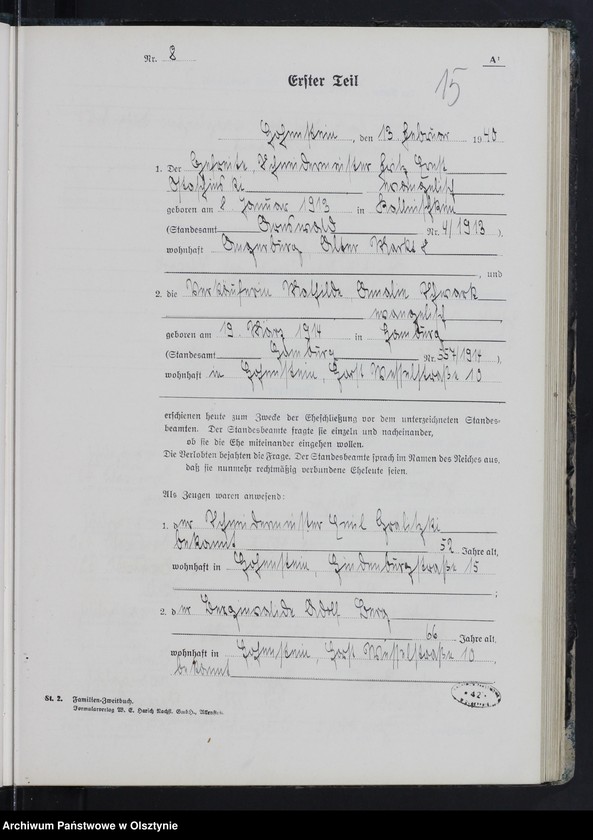 Nr. 8
A¹
Erster Teil
15
Hohenstein, den 13 Februar 1940
1. Der Gefreite, Schneidermeister Fritz Ernst
evangelisch
geboren am 8 Januar 1913 in
(Standesamt Nr. 4/1913 ),
wohnhaft Angerburg Alter Markt 2
, und
2. die Verkäuferin Mathilde Amalie Schwark
evangelisch
geboren am 19. März 1914 in Hamburg
(Standesamt Hamburg Nr. 557/1914 ),
wohnhaft in Hohenstein, Horst Wesselstraße 10
erschienen heute zum Zwecke der Eheschließung vor dem unterzeichneten Standes-
beamten. Der Standesbeamte fragte sie einzeln und nacheinander,
ob sie die Ehe miteinander eingehen wollen.
Die Verlobten bejahten die Frage. Der Standesbeamte sprach im Namen des Reiches aus,
daß sie nunmehr rechtmäßig verbundene Eheleute seien.
Als Zeugen waren anwesend:
1. der Schneidermeister Emil
bekannt 52 Jahre alt,
wohnhaft in Hohenstein, Hindenburgstraße 15
;
2. der Berginvalide Adolf Berg
66 Jahre alt,
wohnhaft in Hohenstein, Horst Wesselstraße 10.
bekannt
St. 2. Familien-Zweitbuch.
Formularverlag W. E. Harich Nachfl. GmbH., Allenstein.
* 42 *
Archiwum Państwowe w Olsztynie